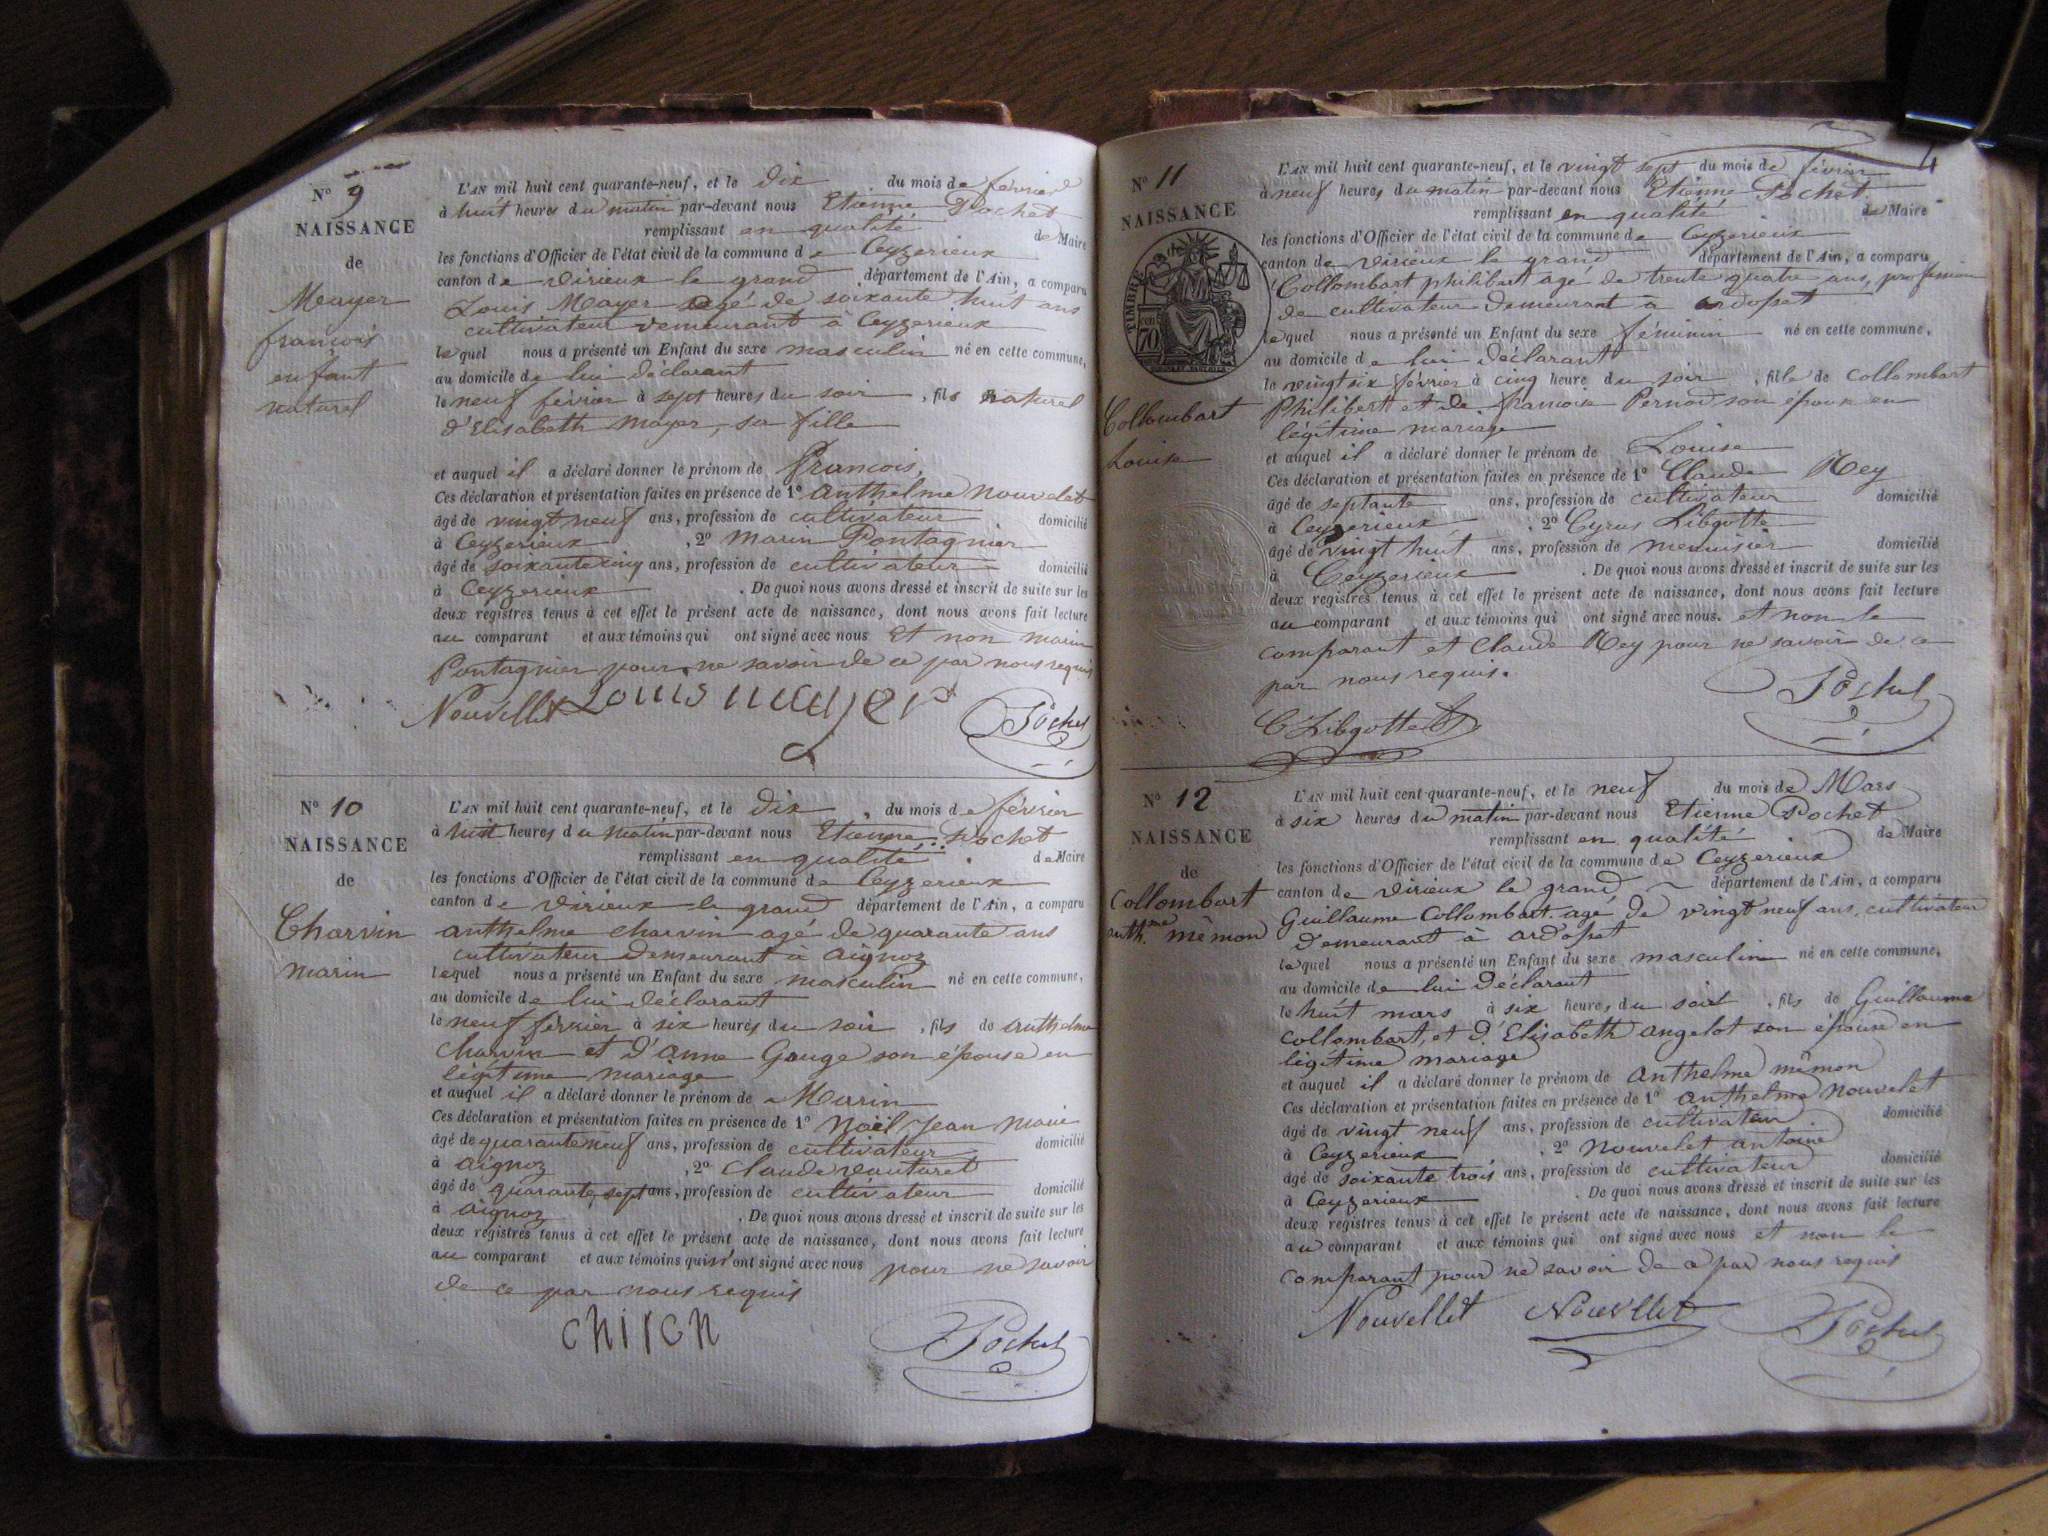 N° 9
NAISSANCE
de
Mayer
francois
enfant
naturel
L'AN mil huit cent quarante-neuf, et le dix du mois de fevrier
à huit heures du matin par-devant nous Etienne Pochet
remplissant en qualité de Maire
les fonctions d'Officier de l'état civil de la commune de Ceyzerieux
canton de virieux le grand département de l'Ain, a comparu
Louis Mayer agé de soixante huit ans
cultivateur demeurant à Ceyzerieux
lequel nous a présenté un Enfant du sexe masculin né en cette commune,
au domicile de lui déclarant
le neuf février à sept heures du soir, fils naturel
d'Elisabeth Mayer, sa fille
et auquel il a déclaré donner le prénom de francois.
Ces déclaration et présentation faites en présence de 1° anthelme nouvelet
âgé de vingt neuf ans, profession de cultivateur domicilié
à Ceyzerieux, 2° Marin Pontagnier
âgé de soixante cinq ans, profession de cultivateur domicilié
à Ceyzerieux. De quoi nous avons dressé et inscrit de suite sur les
deux registres tenus à cet effet le présent acte de naissance, dont nous avons fait lecture
au comparant et aux témoins qui ont signé avec nous et non marin
Pontagnier pour ne savoir de ce par nous requis
Nouvellet Louis mayer Pochet
N° 10
NAISSANCE
de
Charvin
marin
L'AN mil huit cent quarante-neuf, et le dix, du mois de février
à huit heures du matin par-devant nous Etienne Pochet
remplissant en qualité de Maire
les fonctions d'Officier de l'état civil de la commune de Ceyzerieux
canton de virieux le grand département de l'Ain, a comparu
anthelme charvin agé de quarante ans
cultivateur demeurant à aignoz
lequel nous a présenté un Enfant du sexe masculin né en cette commune,
au domicile de lui déclarant
le neuf février à six heures du soir, fils de anthelme
charvin et d'anne Gouge son épouse en
légitime mariage
et auquel il a déclaré donner le prénom de Marin
Ces déclaration et présentation faites en présence de 1° Noël Jean Marie
âgé de quarante neuf ans, profession de cultivateur domicilié
à aignoz, 2° Claude vauturet
âgé de quarante sept ans, profession de cultivateur domicilié
à aignoz. De quoi nous avons dressé et inscrit de suite sur les
deux registres tenus à cet effet le présent acte de naissance, dont nous avons fait lecture
au comparant et aux témoins qui ont signé avec nous pour ne savoir
de ce par nous requis
Pochet
4
N° 11
NAISSANCE
TIMBRE
70
Collombart
Louise
L'AN mil huit cent quarante-neuf, et le vingt sept du mois de février
à neuf heures du matin par-devant nous Etienne Pochet
remplissant en qualité de Maire
les fonctions d'Officier de l'état civil de la commune de Ceyzerieux
canton de virieux le grand département de l'Ain, a comparu
Collombart philibert agé de trente quatre ans, profession
de cultivateur demeurant à ardosset
lequel nous a présenté un Enfant du sexe féminin né en cette commune,
au domicile de lui déclarant
le vingt six février à cinq heure du soir, fille de collombart
Philibert et de francoise Pernod son épouse en
légitime mariage
et auquel il a déclaré donner le prénom de Louise
Ces déclaration et présentation faites en présence de 1° Claude Rey
âgé de septante ans, profession de cultivateur domicilié
à Ceyzerieux, 2° Cyrus Libgotte
âgé de vingt huit ans, profession de menuisier domicilié
à Ceyzerieux. De quoi nous avons dressé et inscrit de suite sur les
deux registres tenus à cet effet le présent acte de naissance, dont nous avons fait lecture
au comparant et aux témoins qui ont signé avec nous. et non le
comparant et Claude Rey pour ne savoir de ce
par nous requis.
C Libgotte Pochet
N° 12
NAISSANCE
de
Collombart
anth.me mêmon
L'AN mil huit cent quarante-neuf, et le neuf du mois de Mars
à six heures du matin par-devant nous Etienne Pochet
remplissant en qualité de Maire
les fonctions d'Officier de l'état civil de la commune de Ceyzerieux
canton de virieux le grand département de l'Ain, a comparu
Guillaume Collombart agé de vingt neuf ans, cultivateur
demeurant à ardosset
lequel nous a présenté un Enfant du sexe masculin né en cette commune,
au domicile de lui déclarant
le huit mars à six heures du soir, fils de Guillaume
collombart, et d'Elisabeth angelot son épouse en
légitime mariage
et auquel il a déclaré donner le prénom de anthelme mêmon
Ces déclaration et présentation faites en présence de 1° anthelme nouvelet
âgé de vingt neuf ans, profession de cultivateur domicilié
à Ceyzerieux, 2° Nouvelet antoine
âgé de soixante trois ans, profession de cultivateur domicilié
à Ceyzerieux. De quoi nous avons dressé et inscrit de suite sur les
deux registres tenus à cet effet le présent acte de naissance, dont nous avons fait lecture
au comparant et aux témoins qui ont signé avec nous et non le
comparant pour ne savoir de ce par nous requis
Nouvellet Nouvellet Pochet